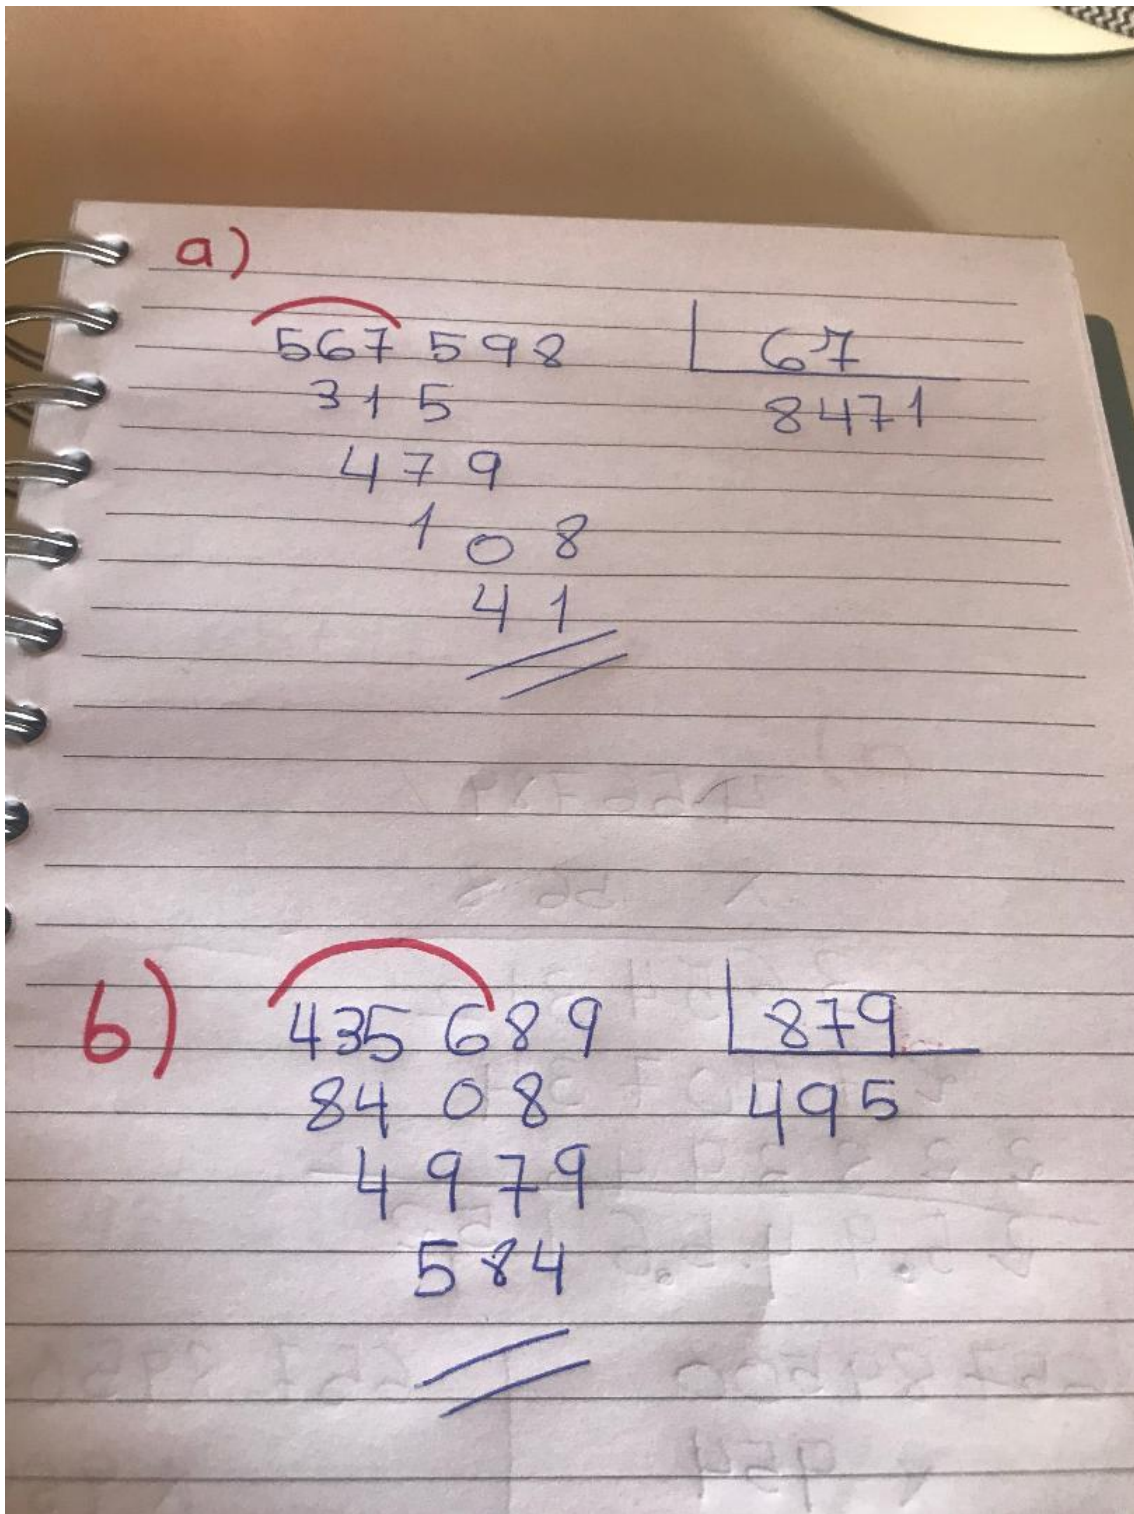 a)
567 598 67
315 8471
479
108
41
b) 435 689 879
8408 495
4979
584